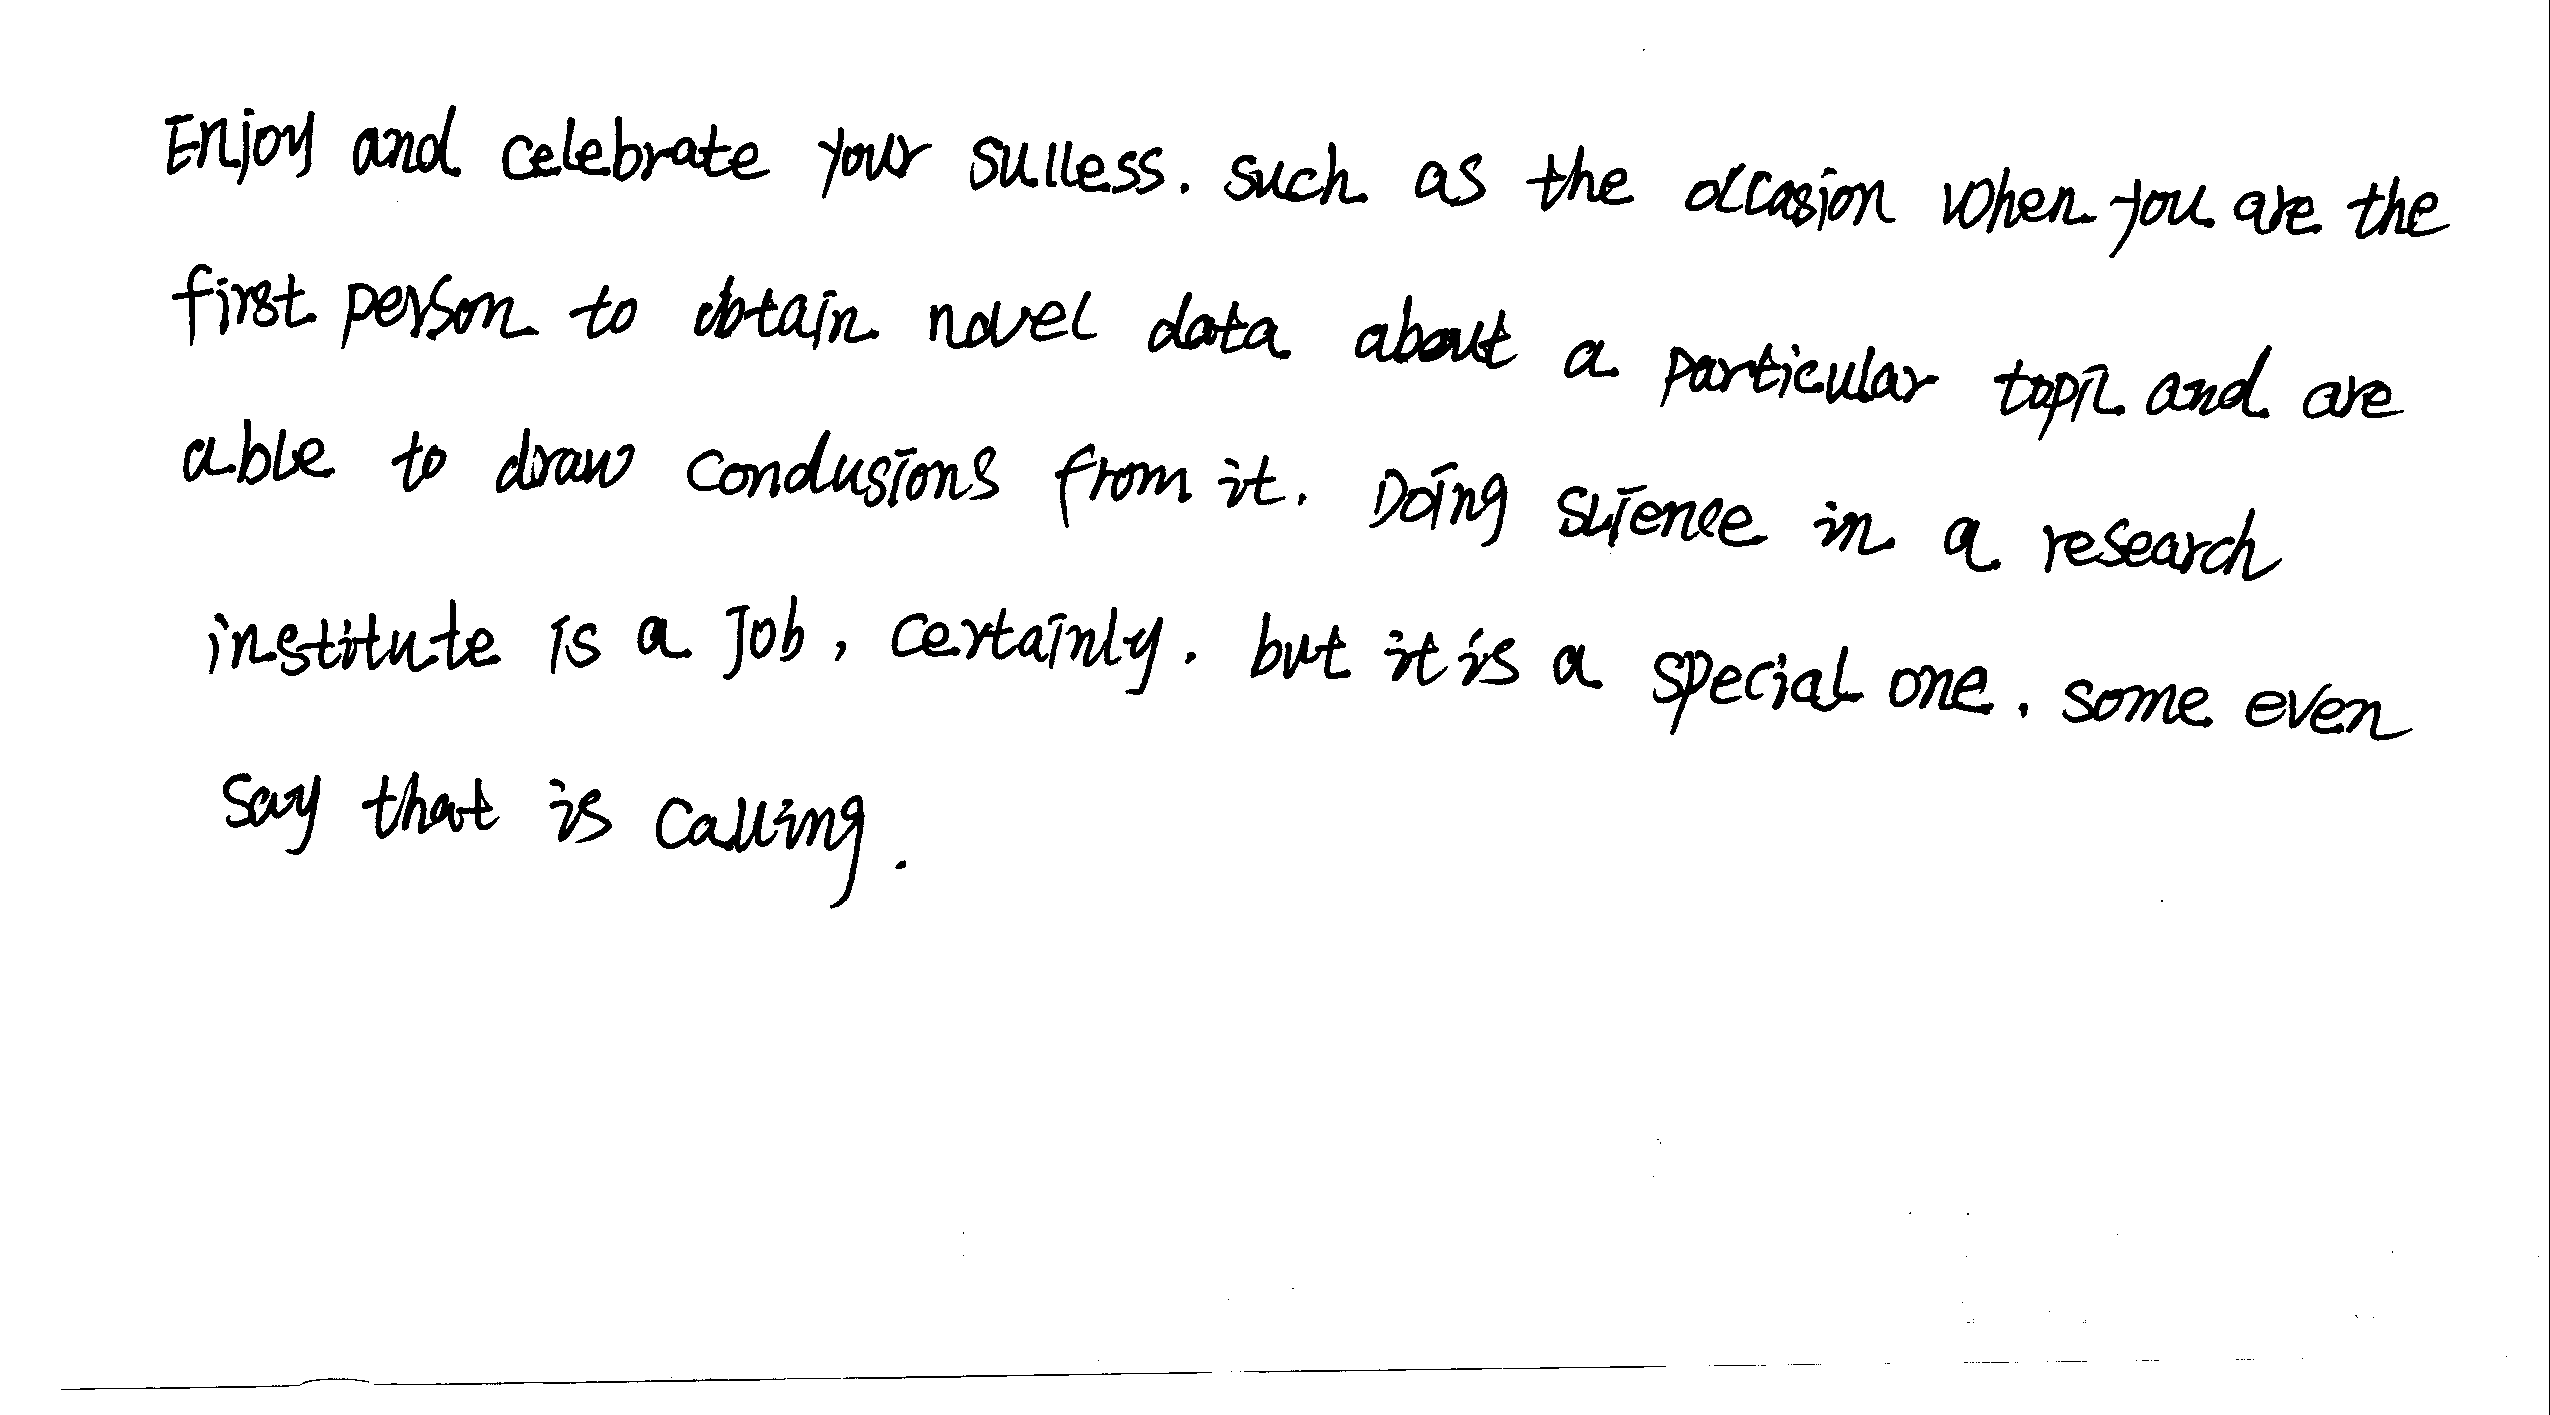 Enjoy and celebrate your success. such as the occasion when you are the
first person to obtain novel data about a particular topic and are
able to draw conclusions from it. Doing science in a research
institute is a job, certainly. but it is a special one. some even
say that is calling.